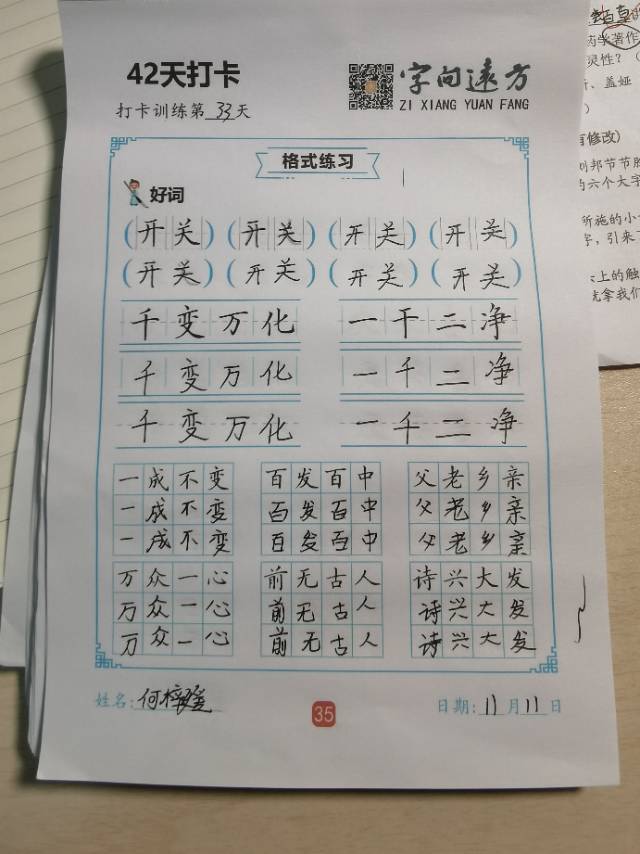 42天打卡
字向远方
ZI XIANG YUAN FANG
打卡训练第33天
格式练习
好词
(开关) (开关) (开关) (开关)
(开关) (开关) (开关) (开关)
千变万化 一干二净
千变万化 一千二净
千变万化 一千二净
一成不变 百发百中 父老乡亲
一成不变 百发百中 父老乡亲
一成不变 百发百中 父老乡亲
万众一心 前无古人 诗兴大发
万众一心 前无古人 诗兴大发
万众一心 前无古人 诗兴大发
姓名:何梓 35 日期:11月11日
药学著作
灵性?(
、盖娅
有修改)
的六个大字
所施的小
字,引来了
上的触
就拿我们